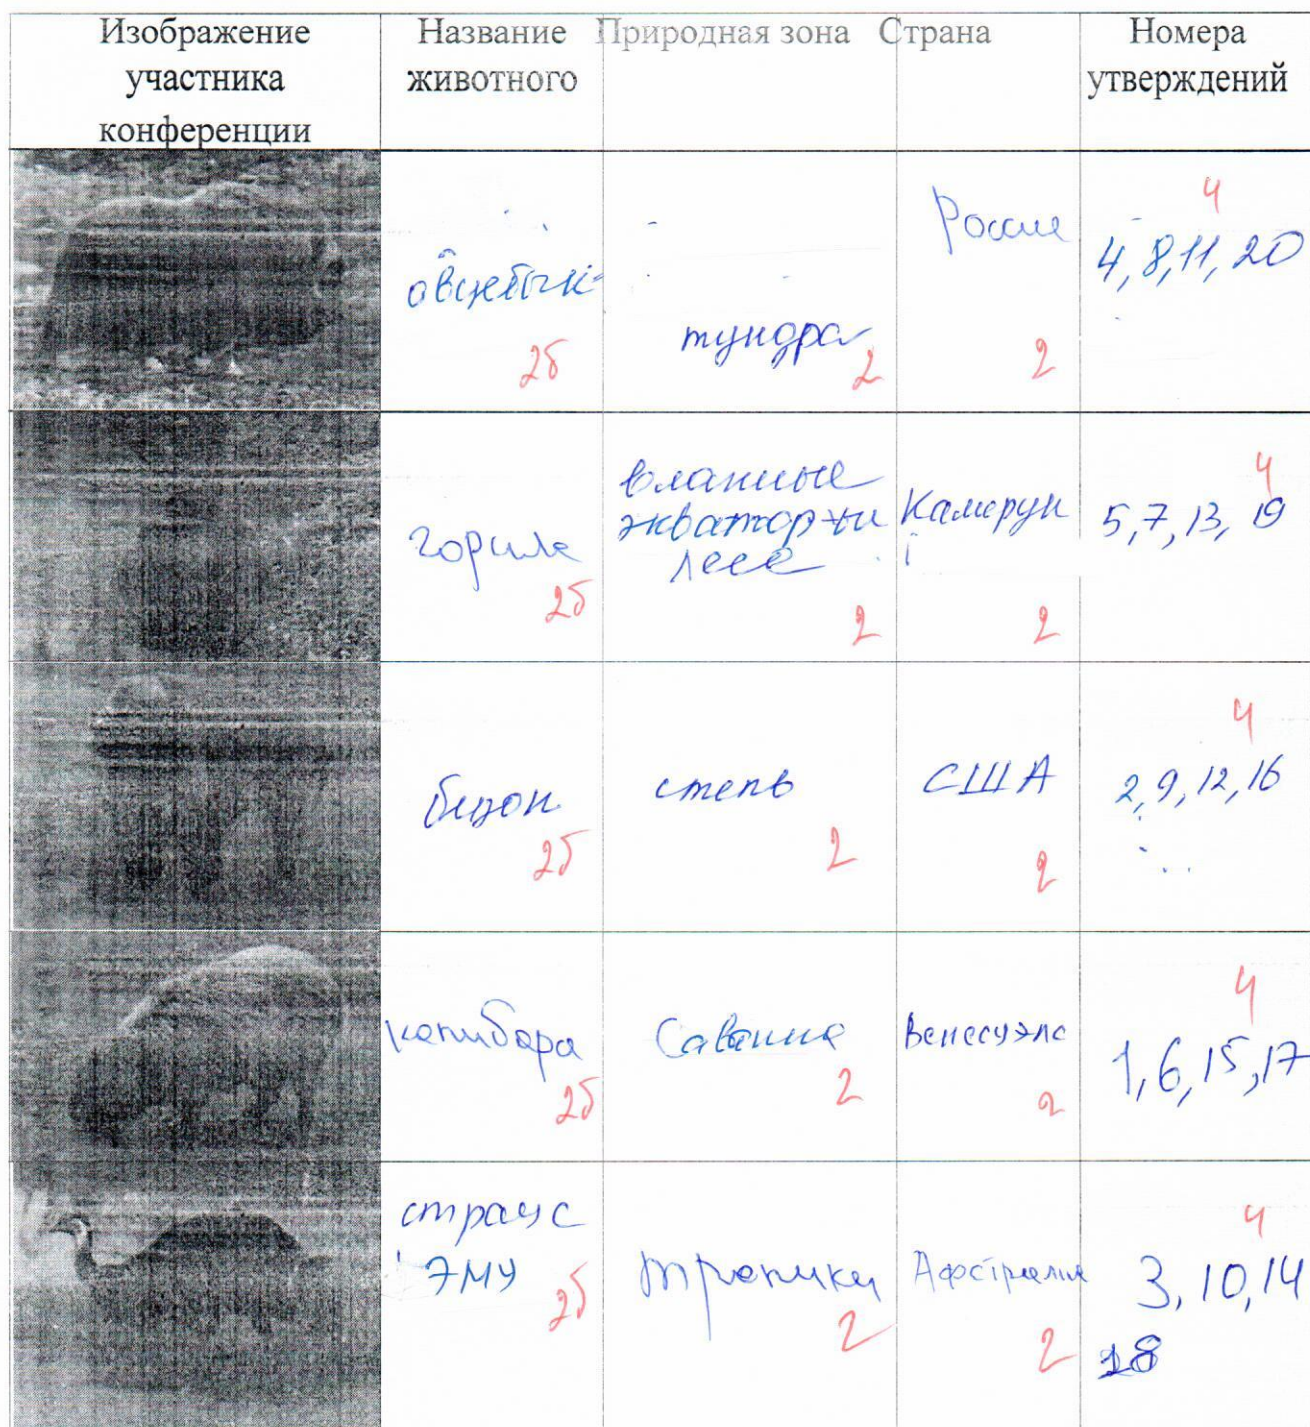 Изображение участника конференции
Название животного
Природная зона
Страна
Номера утверждений
овцебык
2б
тундра
2
Россия
2
4
4, 8, 11, 20
горила
2б
влажные
экватор-ии
леса
2
Камерун
2
4
5, 7, 13, 19
бизон
2б
степь
2
США
2
4
2, 9, 12, 16
капибара
2б
Саванна
2
Венесуэла
2
4
1, 6, 15, 17
страус
ЭМУ
2б
тропики
2
Австралия
2
4
3, 10, 14
18